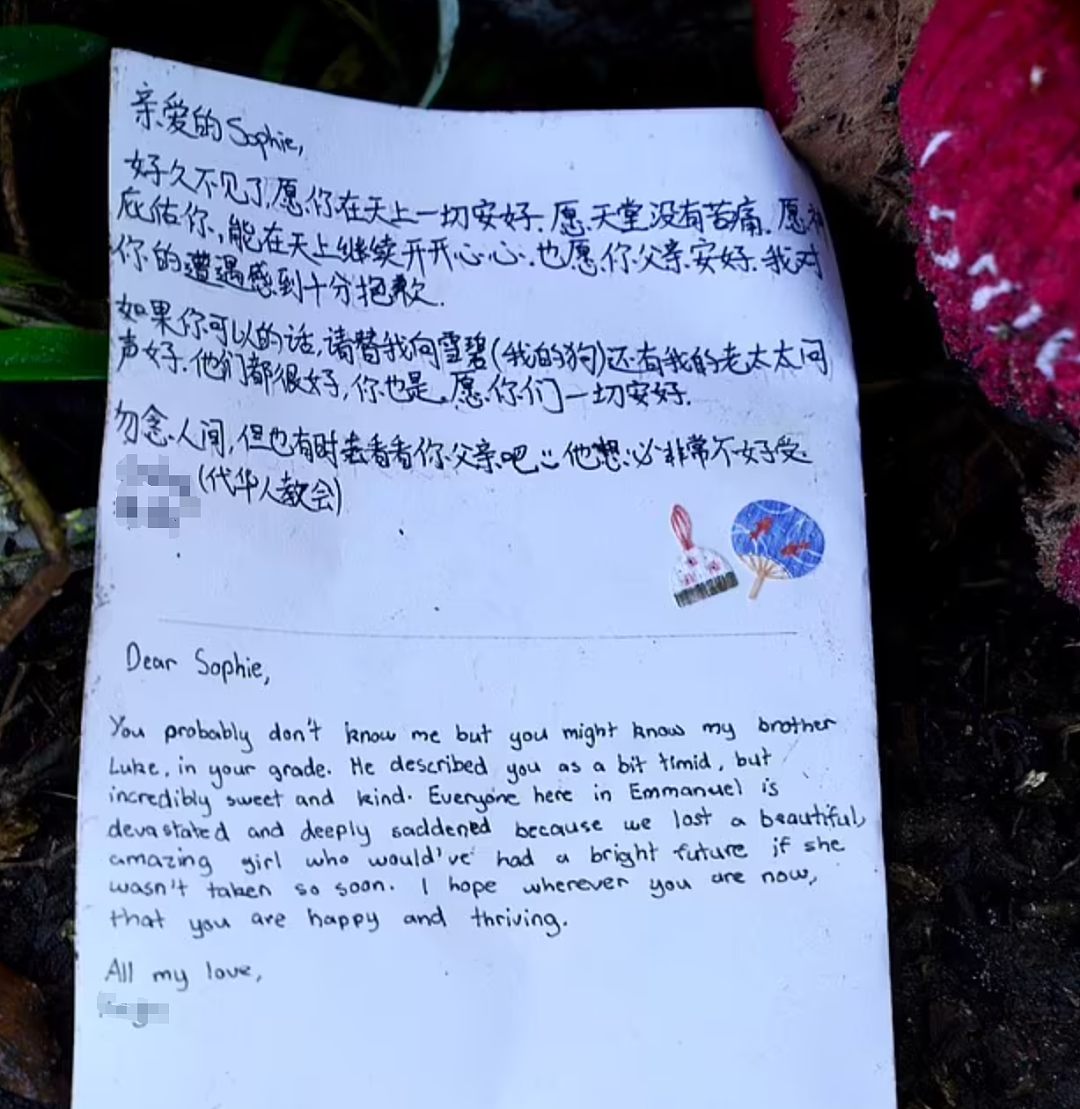 亲爱的Sophie,
好久不见了,愿你在天上一切安好.愿天堂没有苦痛.愿神
庇佑你,能在天上继续开开心心.也愿你父亲安好.我对
你的遭遇感到十分抱歉.
如果你可以的话,请替我向雪碧(我的狗)还有我的老太太问
声好.他们都很好,你也是.愿你们一切安好.
勿念人间,但也有时去看看你父亲吧::他想必非常不好受.
(代华人教会)
Dear Sophie,
You probably don't know me but you might know my brother
Luke, in your grade. He described you as a bit timid, but
incredibly sweet and kind. Everyone here in Emmanuel is
devastated and deeply saddened because we lost a beautiful,
amazing girl who would've had a bright future if she
wasn't taken so soon. I hope wherever you are now,
that you are happy and thriving.
All my love,